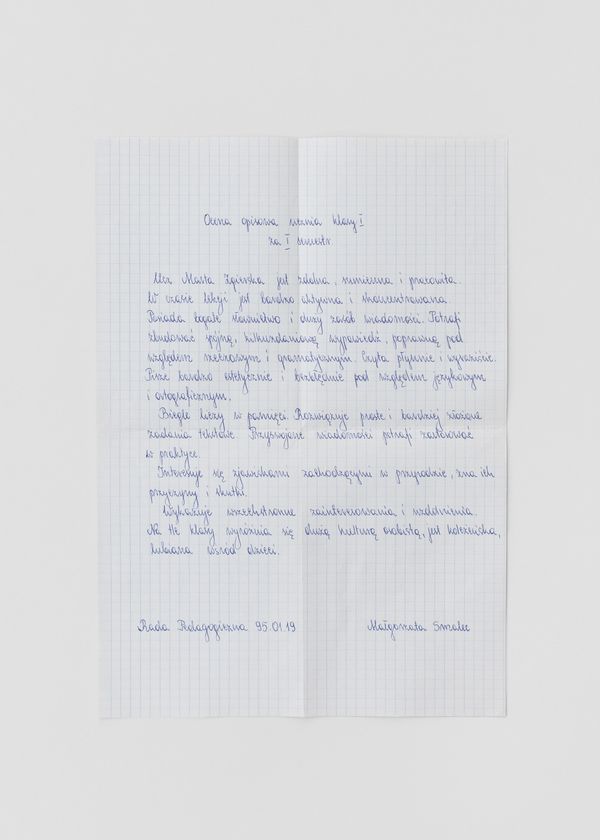 Ocena opisowa ucznia klasy I
za I semestr
Ucz. Marta Zgierska jest zdolna, sumienna i pracowita.
W czasie lekcji jest bardzo aktywna i skoncentrowana.
Posiada bogate słownictwo i duży zasób wiadomości. Potrafi
zbudować spójną, kilkuzdaniową wypowiedź, poprawną pod
względem rzeczowym i gramatycznym. Czyta płynnie i wyraziście.
Pisze bardzo estetycznie i bezbłędnie pod względem językowym
i ortograficznym.
Biegle liczy w pamięci. Rozwiązuje proste i bardziej złożone
zadania tekstowe. Przyswojone wiadomości potrafi zastosować
w praktyce.
Interesuje się zjawiskami zachodzącymi w przyrodzie, zna ich
przyczyny i skutki.
Wykazuje wszechstronne zainteresowania i uzdolnienia.
Na tle klasy wyróżnia się dużą kulturą osobistą, jest koleżeńska,
lubiana wśród dzieci.
Rada Pedagogiczna 95.01.19 Małgorzata